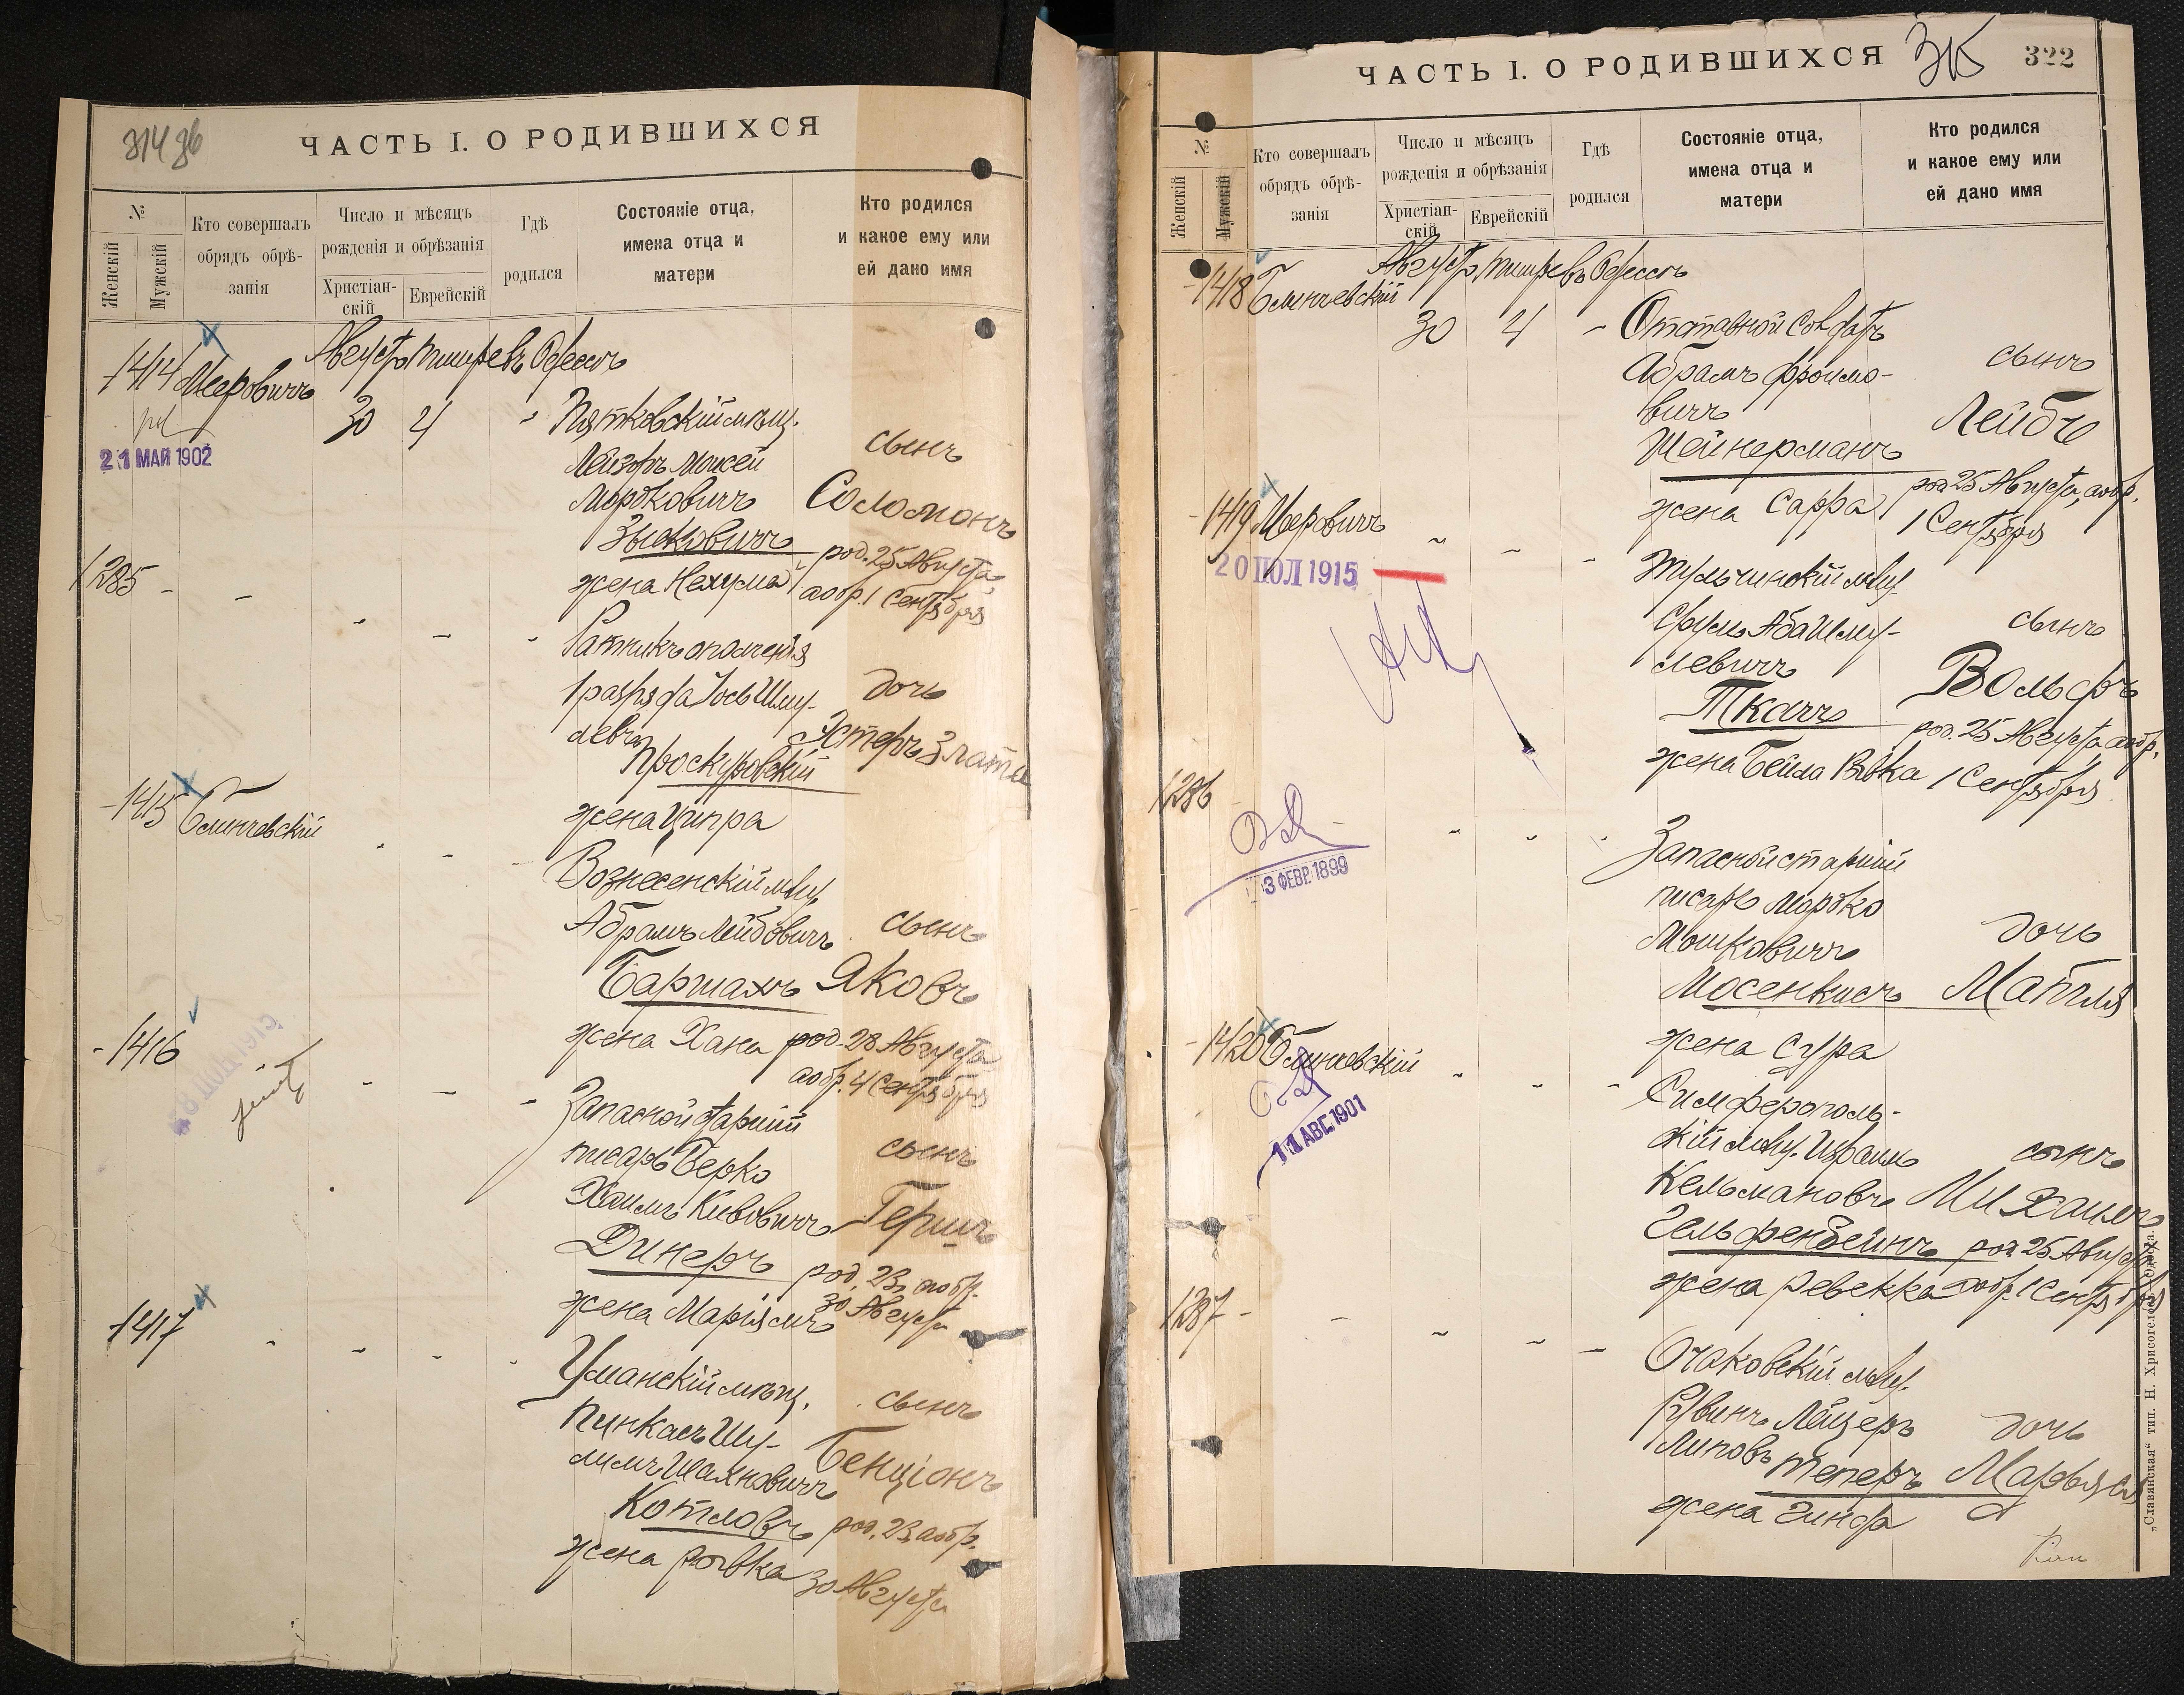 314 об
ЧАСТЬ I. О РОДИВШИХСЯ
№
Женскій
Мужскій
Кто совершалъ
обрядъ обрѣ-
занія
Число и мѣсяцъ
рожденія и обрѣзанія
Христіан-
скій
Еврейскій
Гдѣ
родился
Состояніе отца,
имена отца и
матери
Кто родился
и какое ему или
ей дано имя
1414 Меровичъ
Августъ Тишре въ Одессѣ
30 4 -
21 МАЙ 1902
Пятковскій мѣщ.
Лейзеръ Мойсей
Мордковичъ
Зысковичъ
жена Нехума
сынъ
Соломонъ
род. 25 Августа,
а обр. 1 Сентября
1285 - -
Ратникъ ополченія
1 разряда Іось Шму-
левъ
Проскуровскій
жена Ципра
дочь
Эстеръ Злата
1415 Блинчевскій
Вознесенскій мѣщ.
Абрамъ Лейбовичъ
Бармахъ
жена Хана
сынъ
Яковъ
род. 28 Августа
а обр. 4 Сентября
1416
Запасной старшій
писарь Берко
Хаимъ Кивовичъ
Динеръ
жена Маріямъ
сынъ
Гершъ
род. 23, а обр.
30 Августа
1417
Уманскій мѣщ.
Пинкасъ Шу-
лимъ Шахновичъ
Котловъ
жена Рывка
сынъ
Бенціонъ
род. 23, а обр.
30 Августа
ЧАСТЬ I. О РОДИВШИХСЯ
315
322
№
Женскій
Мужскій
Кто совершалъ
обрядъ обрѣ-
занія
Число и мѣсяцъ
рожденія и обрѣзанія
Христіан-
скій
Еврейскій
Гдѣ
родился
Состояніе отца,
имена отца и
матери
Кто родился
и какое ему или
ей дано имя
1418 Блинчевскій
Августъ Тишре въ Одессѣ
30 4 -
Отставной солдатъ
Абрамъ Фроимо-
вичъ
Шейнерманъ
жена Сарра
сынъ
Лейбъ
род. 25 Августа, а обр.
1 Сентября
1419 Меровичъ
20 ІЮЛ 1915
Тульчинскій мѣщ.
Сруль Аба Шму-
левичъ
Ткачъ
жена Бейла Ривка
сынъ
Вольфъ
род. 25 Августа, а обр.
1 Сентября
1286
3 ФЕВР. 1899
Запасной старшій
писарь Мордко
Мошковичъ
Мосенкисъ
жена Сура
дочь
Матля
1420 Блинчевскій
11 АВГ. 1901
Симферополь-
скій мѣщ. Израиль
Кельмановъ
Гельфенбейнъ
жена Ревекка
сынъ
Михаилъ
род. 25 Августа
а обр. 1 Сентября
1287 -
Очаковскій мѣщ.
Рувинъ Лейзеръ
Липовъ Теперъ
жена Гинда
дочь
Марьяся
„Славянская“ тип. Н. Хрисогелосъ Одесса.